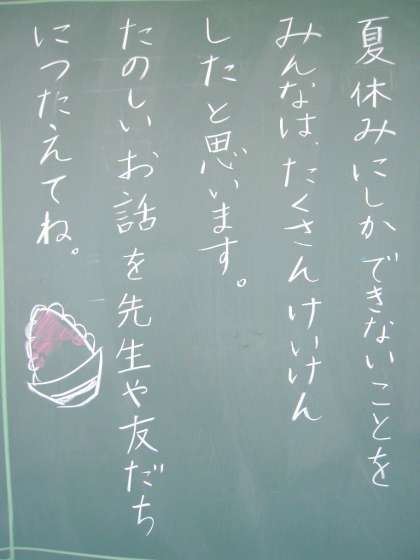 夏休みにしかできないことを
みんなは、たくさんけいけん
したと思います。
たのしいお話を先生や友だち
につたえてね。